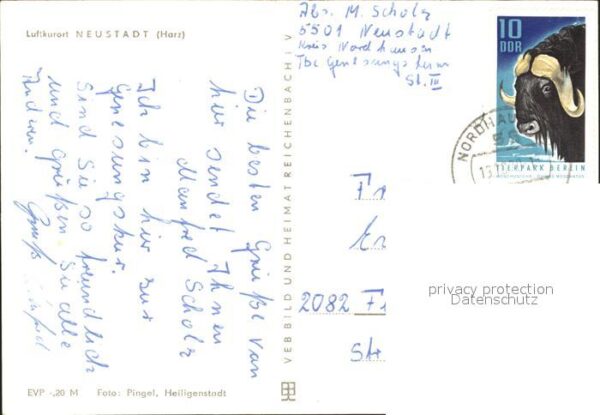 Luftkurort NEUSTADT (Harz)
Die besten Grüße von
hier sendet Ihnen
Manfred Scholz
Ich bin hier zur
Genesungskur.
Sind Sie so freundlich
und grüßen Sie alle
anderen.
Gruß Manfred
EVP -,20 M Foto: Pingel, Heiligenstadt
VEB BILD UND HEIMAT REICHENBACH i V
Abs. M. Scholz
5501 Neustadt
Kreis Nordhausen
Tbc Genesungsheim
St. III
10
DDR
TIERPARK BERLIN
NORDHAU
13
Fr
Er
2082 Fr
Str
privacy protection
Datenschutz